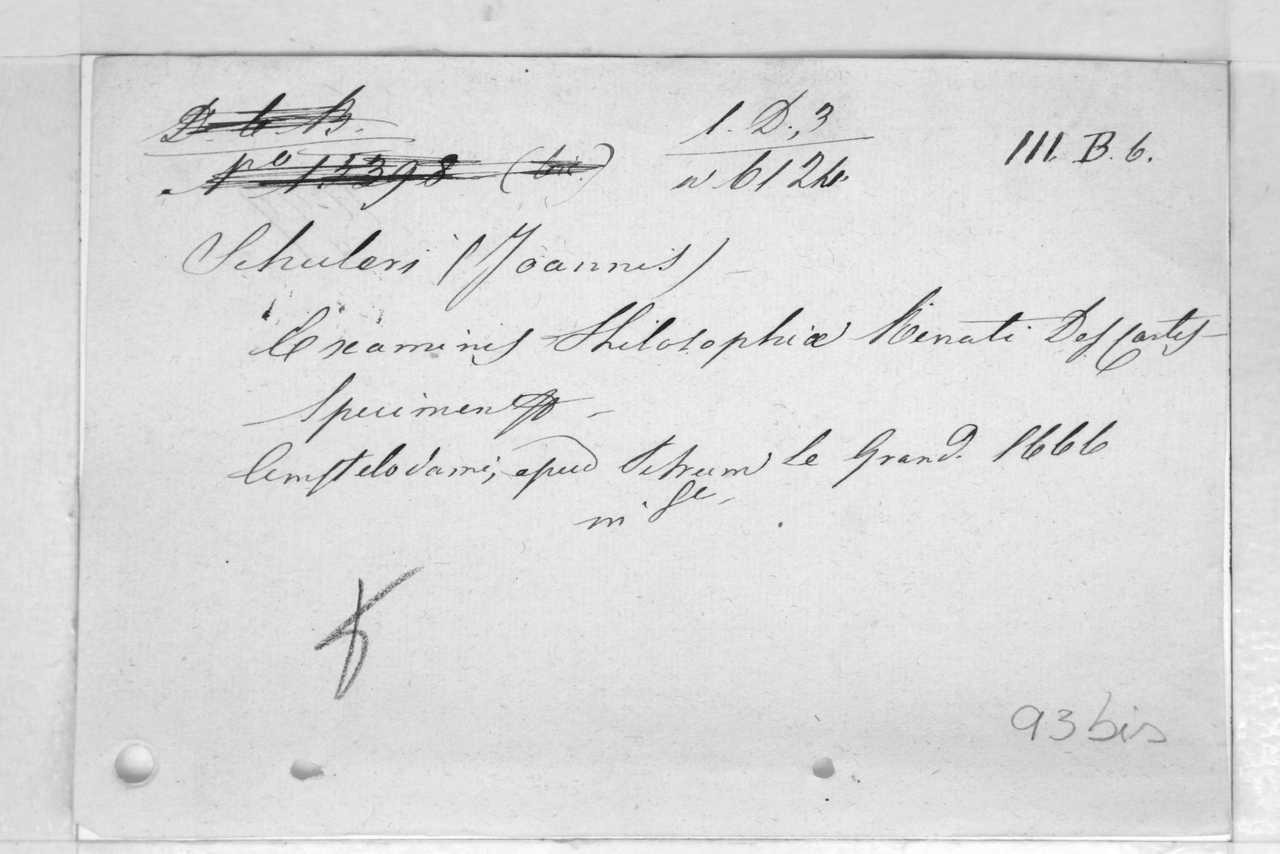 D. 6. B. 1. D., 3 III. B. 6.
Nº 15398 (bis) n 612
Schuleri (Joannis)
Examinis Philosophiæ Renati Des Cartes
Specimen
Amstelodami, apud Petrum Le Grand. 1666
in 8e.
93 bis